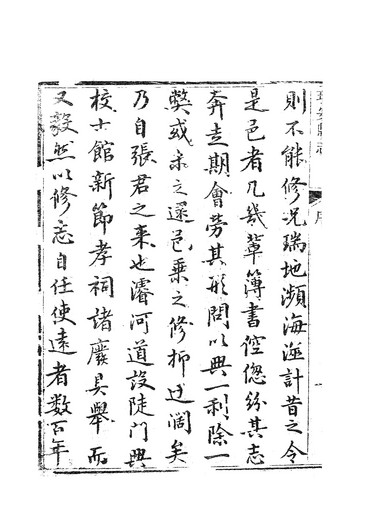 則不能修況瑞地瀕海洳計昔之令
是邑者凡幾輩簿書倥傯紛其志
奔走期會勞其形問以典一利除一
弊或未之遑邑乗之修抑迂濶矣
乃自張君之来也濬河道設陡門典
校士館新節孝祠諸廢具舉而
又毅然以修志自任使遠者數百年